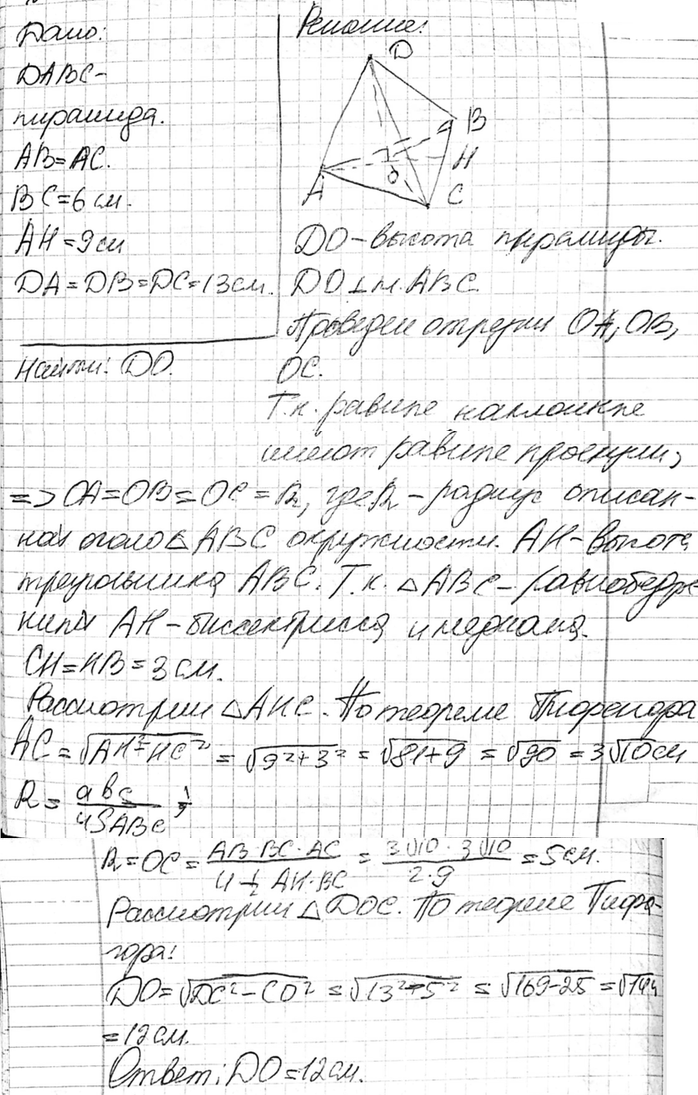 Дано:
DABC-
пирамида.
AB=AC.
BC=6 см.
AH=9 см
DA=DB=DC=13 см.
Найти: DO.
Решение:
D
B
H
A
O
C
DO-высота пирамиды.
DO⊥пл. ABC
Проведем отрезки OA, OB,
OC.
Т.к. равные наклонные
имеют равные проекции,
=> OA=OB=OC=R, где R-радиус описан-
ной около △ABC окружности. AH-высота
треугольника ABC. Т.к. △ABC-равнобедре
нный AH-биссектрисса и медиана.
CH=HB=3 см.
Рассмотрим △AHC. По теореме Пифагора
AC=√AH²+HC² = √9²+3² = √81+9 = √90 = 3√10 см
R= abc/4S ABC ;
R=OC= AB·BC·AC/4·½ AH·BC = 3√10·3√10/2·9 =5 см.
Рассмотрим △DOC. По теореме Пифа-
гора:
DO=√DC²-CO² = √13²-5² = √169-25 = √144
=12 см.
Ответ: DO=12 см.